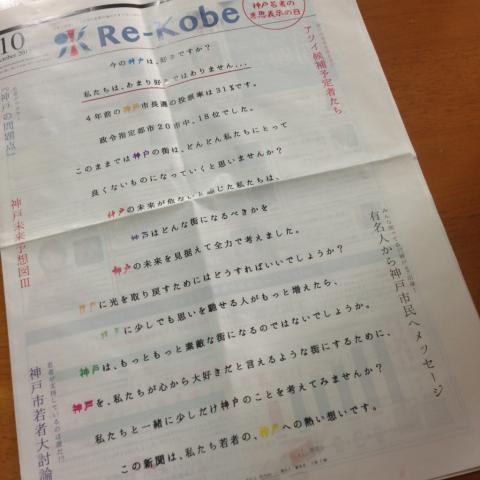 10
Re-Kobe
神戸若者の
意思表示の日
今の神戸は、好きですか？
私たちは、あまり好きではありません...
4年前の神戸市長選の投票率は31%です。
政令指定都市20市中、18位でした。
このままでは神戸の街は、どんどん私たちにとって
良くないものになっていくと思いませんか？
神戸の未来が危ないと感じた私たちは、
神戸はどんな街になるべきかを
神戸の未来を見据えて全力で考えました。
神戸に光を取り戻すためにはどうすればいいでしょうか？
神戸に少しでも思いを馳せる人がもっと増えたら、
神戸は、もっともっと素敵な街になるのではないでしょうか。
神戸を、私たちが心から大好きだと言えるような街にするために、
私たちと一緒に少しだけ神戸のことを考えてみませんか？
この新聞は、私たち若者の、神戸への熱い想いです。
アツイ候補予定者たち
有名人から神戸市民へメッセージ
『神戸の問題点』
神戸未来予想図III
若者が支持しているのは誰だ!?
神戸市若者大討論